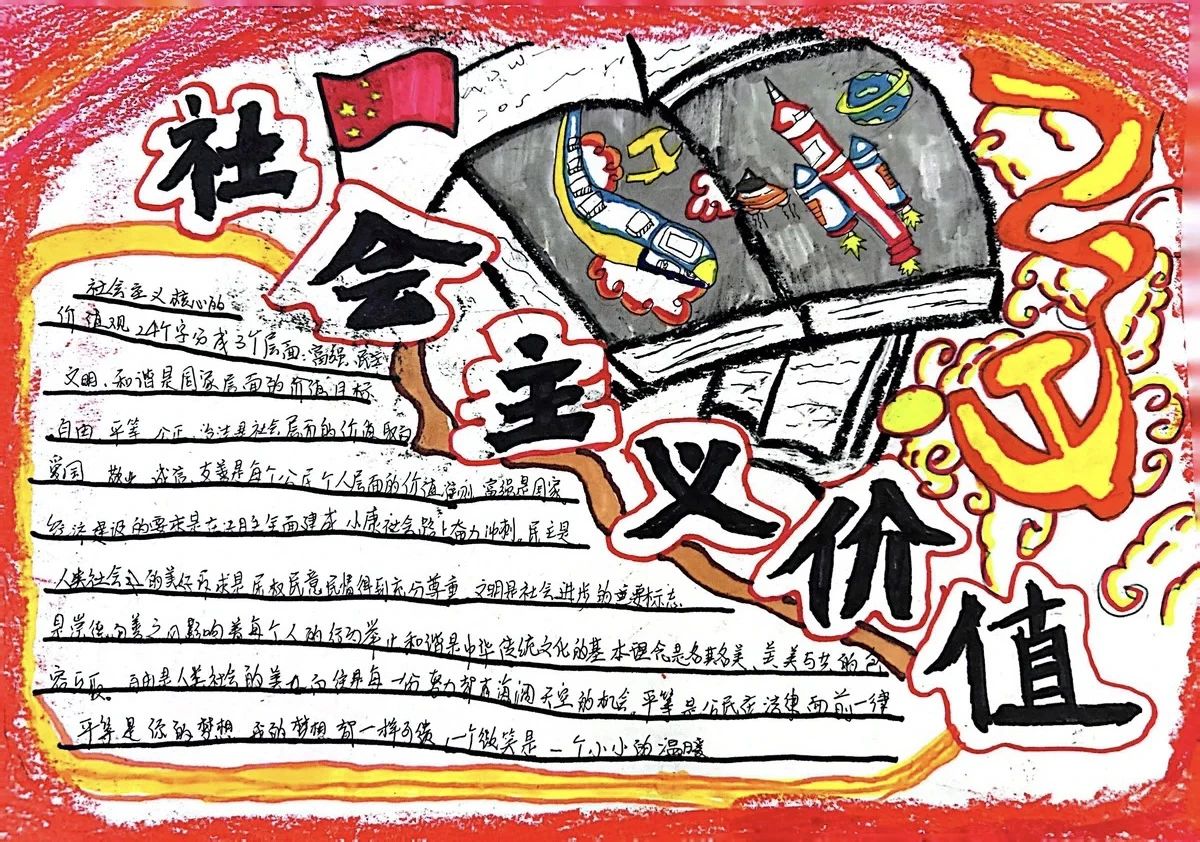 社会主义价值
社会主义核心的
价值观24个字分成3个层面:富强、民主
文明、和谐是国家层面的价值目标
自由 平等 公正 法治是社会层面的价值取向
爱国 敬业 诚信 友善是每个公民个人层面的价值准则 富强是国家
经济建设的要求是在全面建成小康社会路上奋力冲刺。民主是
人类社会的美好 求是 权民意民情得到充分尊重 文明是社会进步的重要标志
是崇德向善之 影响着每个人的行为举止 和谐是中华传统文化的基本理念是各美其美、美美与共的包
容 自由是人类社会的美 向使每一份努力都有 天空的机会。平等是公民在法律面前一律
平等是你的梦想 我的梦想都一样 一个微笑是一个小小的温暖